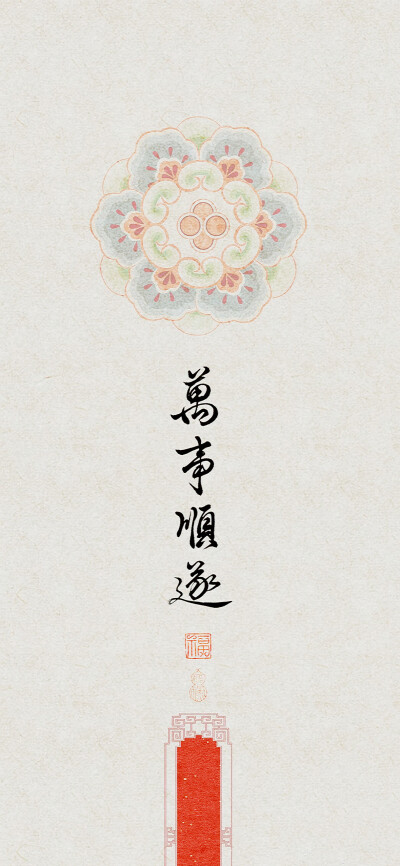 萬事順遂
福